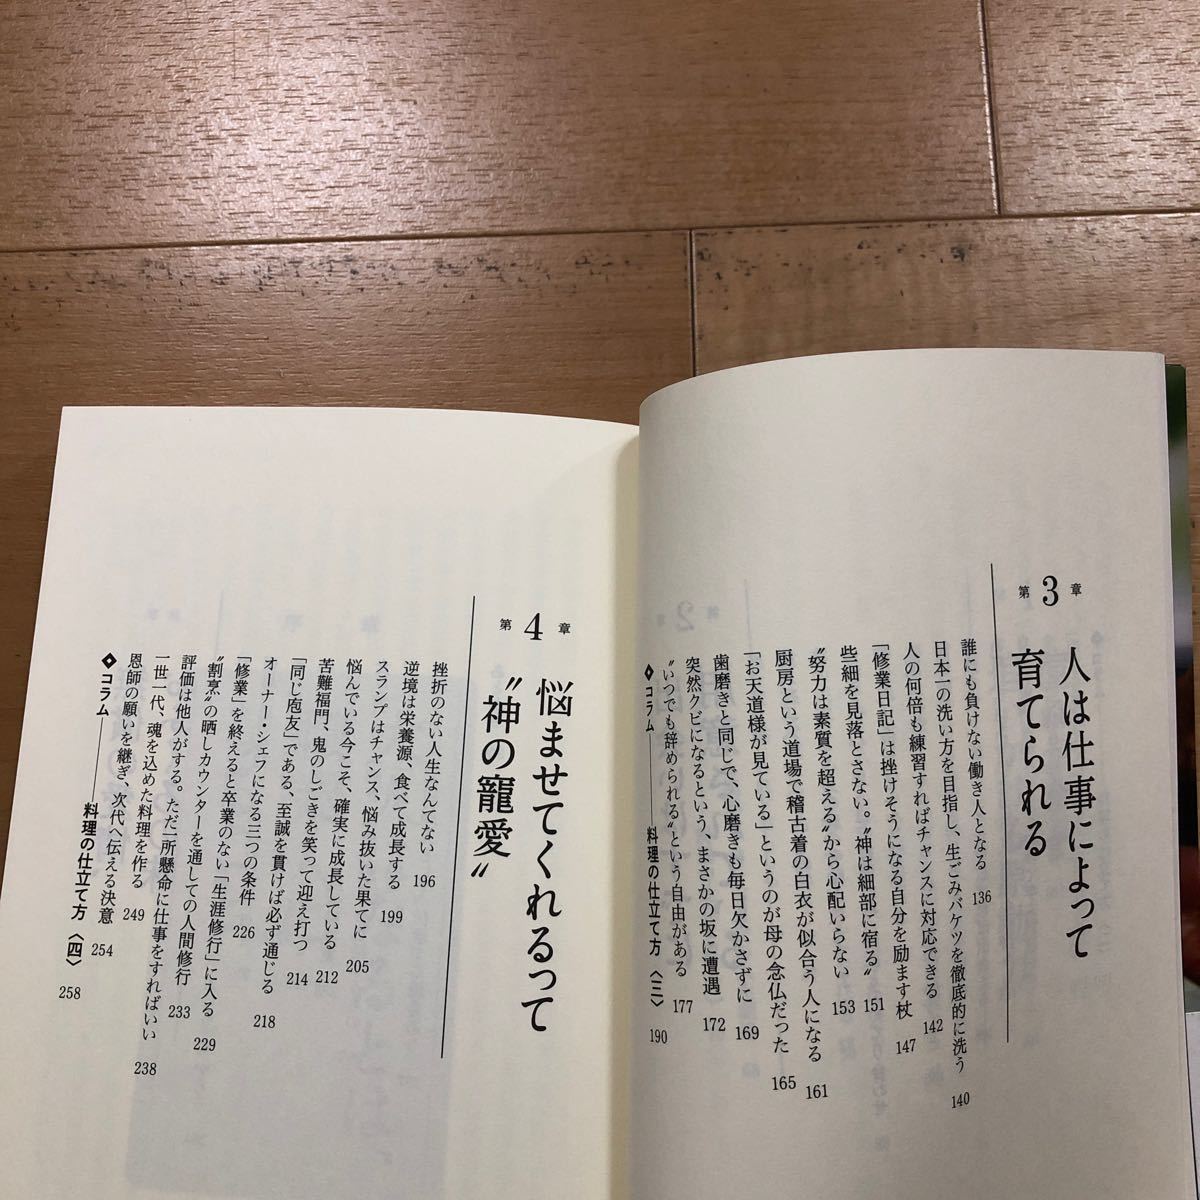 第3章 人は仕事によって
育てられる
誰にも負けない働き人となる 136
日本一の洗い方を目指し、生ごみバケツを徹底的に洗う 140
人の何倍も練習すればチャンスに対応できる 142
「修業日記」は挫けそうになる自分を励ます杖 147
些細を見落とさない。〝神は細部に宿る〟 151
〝努力は素質を超える〟から心配いらない 153
厨房という道場で稽古着の白衣が似合う人になる 161
「お天道様が見ている」というのが母の念仏だった 165
歯磨きと同じで、心磨きも毎日欠かさずに 169
突然クビになるという、まさかの坂に遭遇 172
〝いつでも辞められる〟という自由がある 177
◆コラム――料理の仕立て方〈三〉 190
第4章 悩ませてくれるって
〝神の寵愛〟
挫折のない人生なんてない 196
逆境は栄養源、食べて成長する 199
スランプはチャンス、悩み抜いた果てに 205
悩んでいる今こそ、確実に成長している 212
苦難福門、鬼のしごきを笑って迎え打つ 214
「同じ庖友」である、至誠を貫けば必ず通じる 218
オーナー・シェフになる三つの条件 226
「修業」を終えると卒業のない「生涯修行」に入る 229
〝割烹〟の晒しカウンターを通しての人間修行 233
評価は他人がする。ただ一所懸命に仕事をすればいい 238
一世一代、魂を込めた料理を作る 249
恩師の願いを継ぎ、次代へ伝える決意 254
◆コラム――料理の仕立て方〈四〉 258